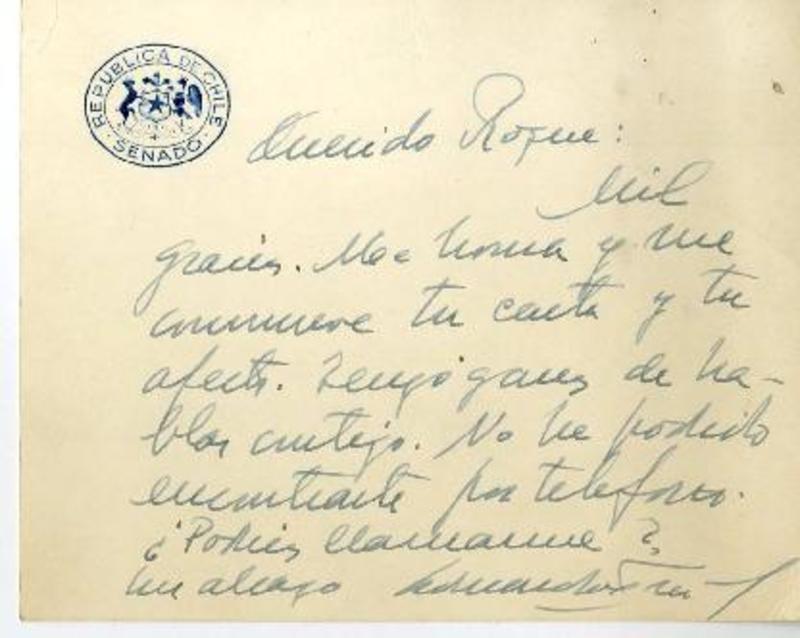 REPUBLICA DE CHILE
SENADO
Querido Roque:
Mil
gracias. Me honra y me
conmueve tu carta y tu
afecto. Tengo ganas de ha-
blar contigo. No he podido
encontrarte por teléfono.
¿Podrías llamarme?
Un abrazo